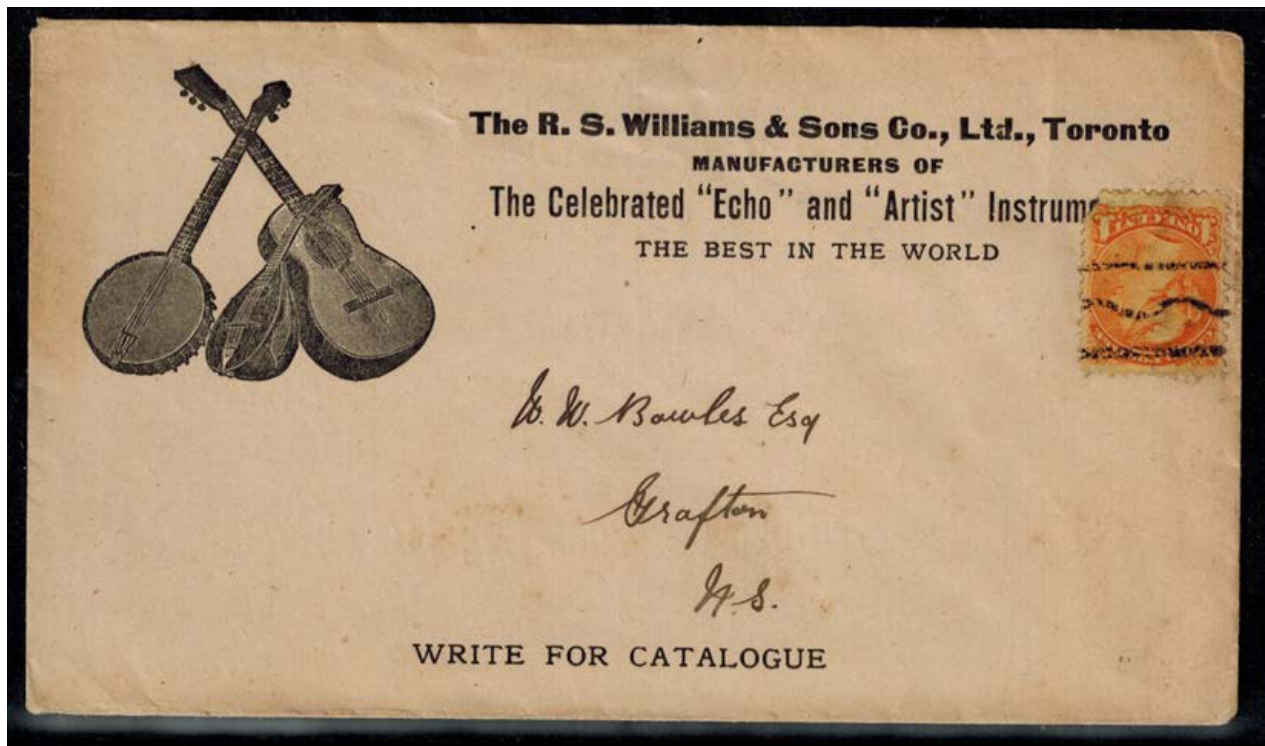 The R. S. Williams & Sons Co., Ltd., Toronto
MANUFACTURERS OF
The Celebrated "Echo" and "Artist" Instrume
THE BEST IN THE WORLD
W. W. Bowles Esq
Grafton
N.S.
WRITE FOR CATALOGUE